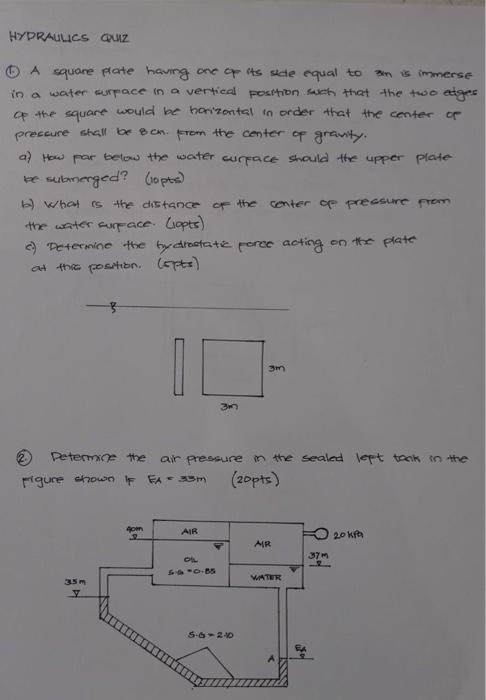 HYDRAULICS QUIZ
① A square plate having one of its side equal to 3m is immerse
in a water surface in a vertical position such that the two edges
of the square would be horizontal in order that the center of
pressure shall be 8cm. from the center of gravity.
a) How far below the water surface should the upper plate
be submerged? (10pts)
b) What is the distance of the center of pressure from
the water surface. (10pts)
c) Determine the hydrostatic force acting on the plate
at this position. (5pts)
3m
3m
② Determine the air pressure in the sealed left tank in the
figure shown if EA = 33m (20pts)
40m
AIR
AIR
20 kPa
OIL
S.G = 0.85
37m
WATER
35m
S.G = 2.10
A
EA